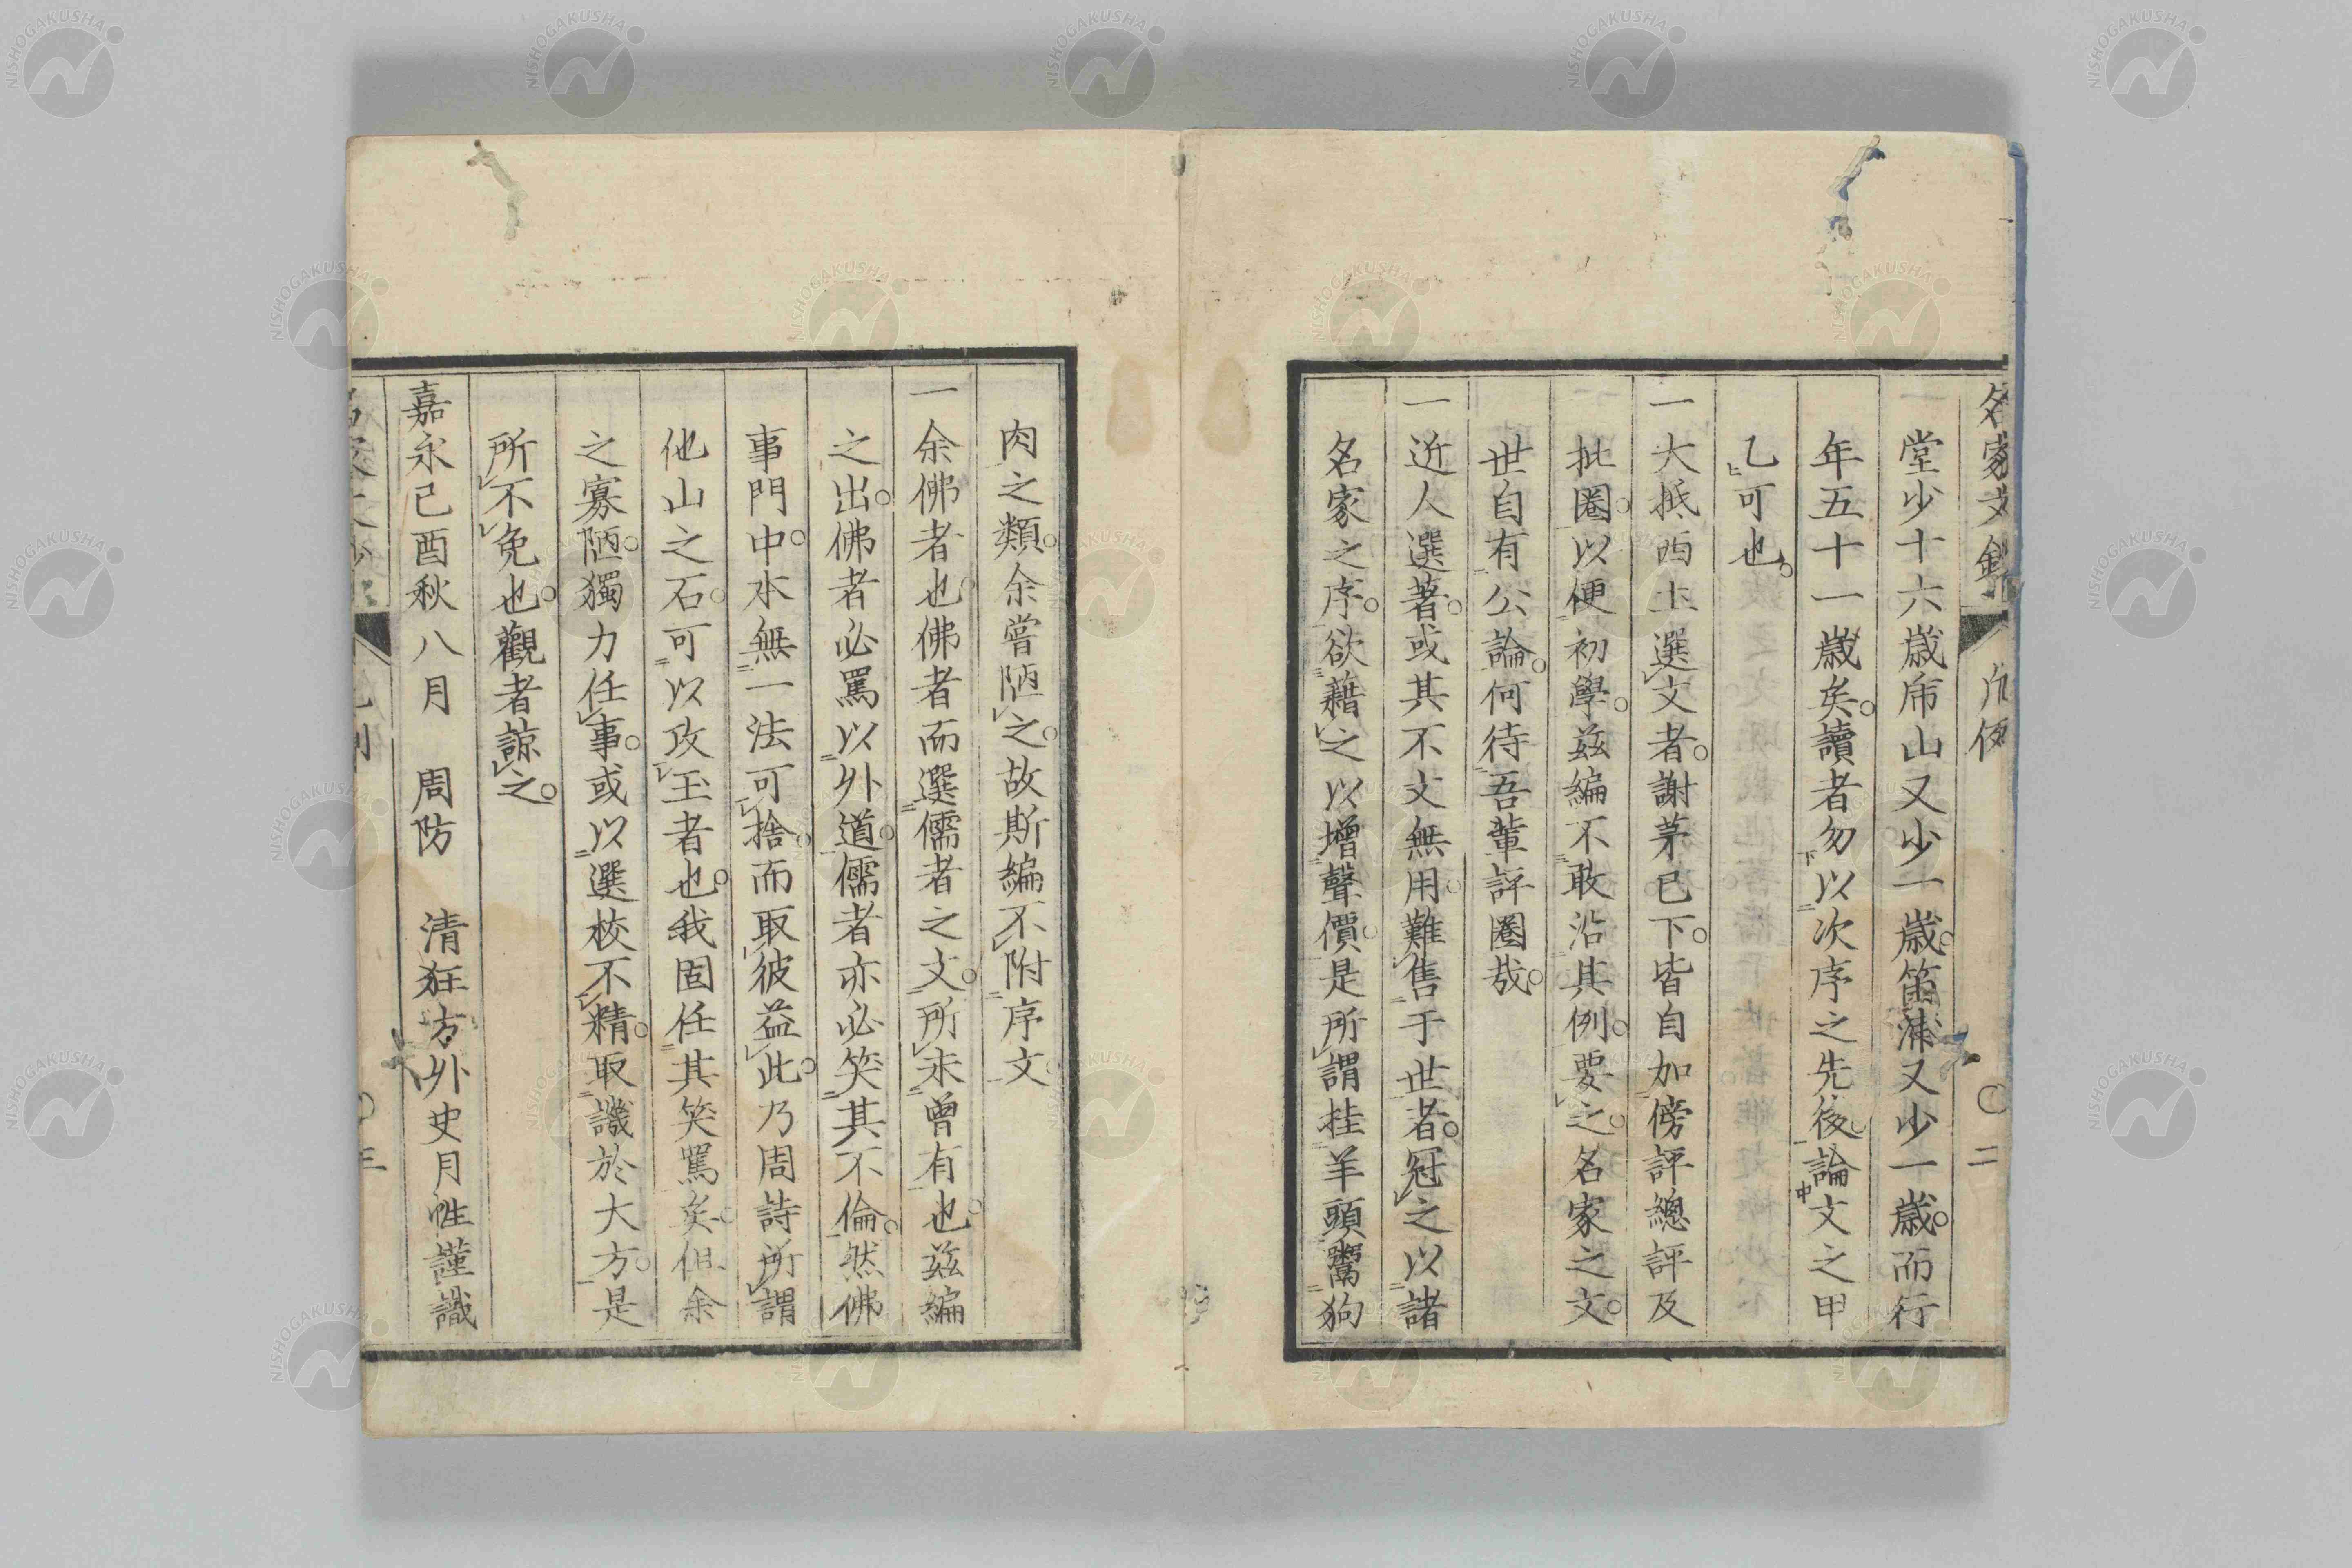 名家文鈔 凡例 〇二
堂少十六歳帝山又少一歳。笛浦又少一歳。而行
年五十一歳矣。讀者勿下以次序之先後。論中文之甲
乙上可也。
一大抵西土選文者。謝茅已下。皆自加傍評總評及
批圈。以便初學。茲編不敢沿其例。要之。名家之文。
世自有公論。何待吾輩評圈哉。
一近人選著。或其不文無用。難售于世者。冠之以諸
名家之序。欲藉之以増聲價。是所謂挂羊頭鬻狗
肉之類。余嘗陋之。故斯編不附序文
一余佛者也。佛者而選儒者之文。所未曾有也。茲編
之出。佛者必罵以外道。儒者亦必笑其不倫。然佛
事門中。本無一法可捨。而取彼益此。乃周詩所謂
他山之石。可以攻玉者也。我固任其笑罵矣。但余
之寡陋。獨力任事。或以選校不精。取譏於大方。是
所不免也。觀者諒之。
嘉永己酉秋八月 周防 清狂方外史月性謹識
三
NISHOGAKUSHA